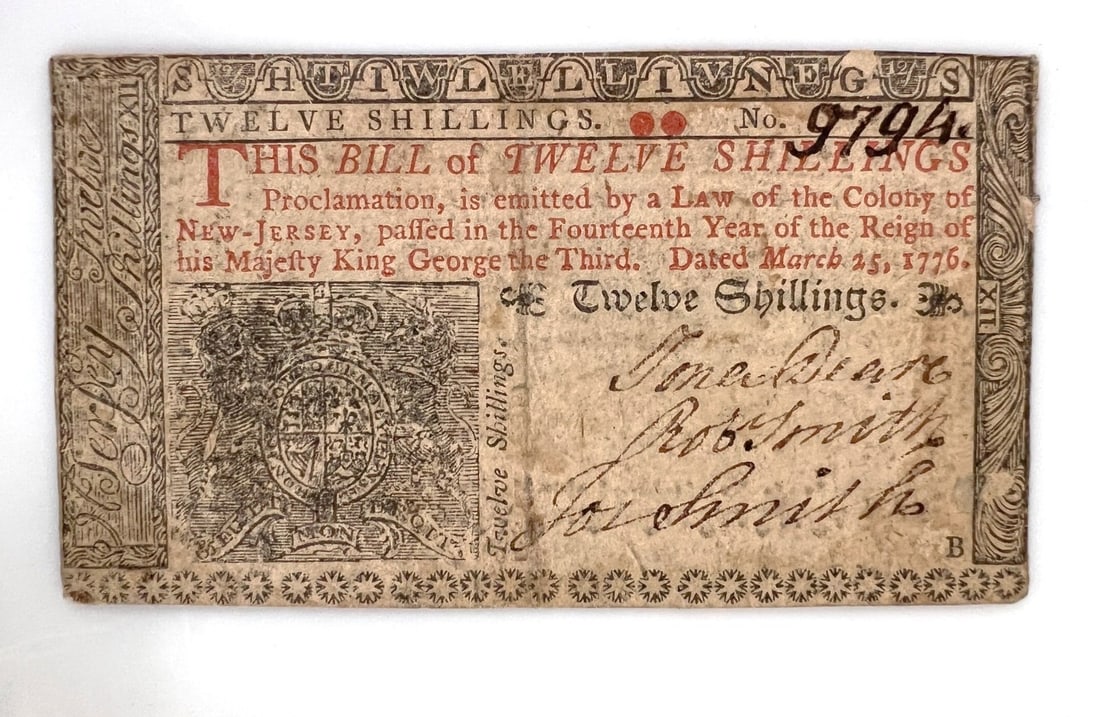 TWELVE SHILLINGS. No. 9794.
THIS BILL of TWELVE SHILLINGS
Proclamation, is emitted by a LAW of the Colony of
NEW-JERSEY, paſſed in the Fourteenth Year of the Reign of
his Majeſty King George the Third. Dated March 25, 1776.
Twelve Shillings.
Twelve Shillings.
Jona Deare
Rob Smith
Jos Smith
B
MON
N Jerſey Twelve Shillings XII
XII